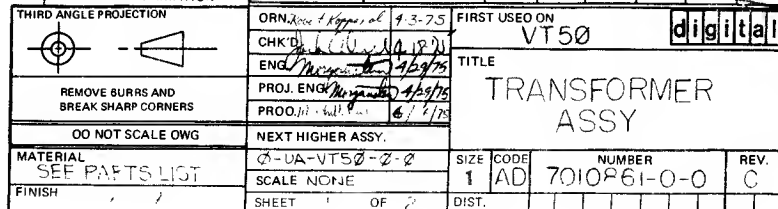 THIRD ANGLE PROJECTION
REMOVE BURRS AND
BREAK SHARP CORNERS
DO NOT SCALE DWG
MATERIAL
SEE PARTS LIST
FINISH
DRN. 4-3-75
CHK'D
ENG. 4/29/75
PROJ. ENG. 4/29/75
PROD.
NEXT HIGHER ASSY.
Ø-UA-VT5Ø-Ø-Ø
SCALE NONE
SHEET 1 OF 2
FIRST USED ON
VT50
digital
TITLE
TRANSFORMER
ASSY
SIZE CODE NUMBER REV.
1 AD 7010861-0-0 C
DIST.